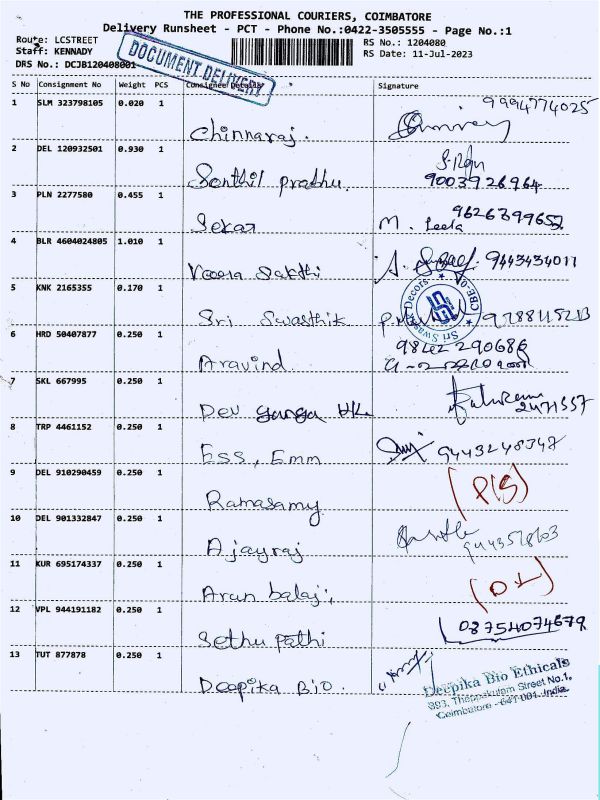 THE PROFESSIONAL COURIERS, COIMBATORE
Delivery Runsheet - PCT - Phone No.:0422-3505555 - Page No.:1
Route: LCSTREET
RS No.: 1204080
Staff: KENNADY
RS Date: 11-Jul-2023
DRS No.: DCJB120408001
DOCUMENT DELIVERY
S No Consignment No Weight PCS Consignee Details Signature
1 SLM 323798105 0.020 1 9994774025
Chinnaraj.
2 DEL 120932501 0.930 1
Senthil prabhu. 9003926964
3 PLN 2277580 0.455 1 9626399652
Sekar M. Leela
4 BLR 4604024805 1.010 1
Veera Sakthi 9443434011
5 KNK 2165355 0.170 1
Sri Swasthik
Sri Swastik Decors
6 HRD 50407877 0.250 1 9842290686
Aravind
7 SKL 667995 0.250 1
Dev Ganga 2471557
8 TRP 4461152 0.250 1
Ess, Emm 9443248347
9 DEL 910290459 0.250 1
Ramasamy (P/S)
10 DEL 901332847 0.250 1
Ajayraj
11 KUR 695174337 0.250 1
Arun balaji,
12 VPL 944191182 0.250 1
Sethupathi 08754074679
13 TUT 877878 0.250 1
Deepika Bio.
Deepika Bio Ethicals
393, Theppakulam Street No.1,
Coimbatore - 641 001. India.